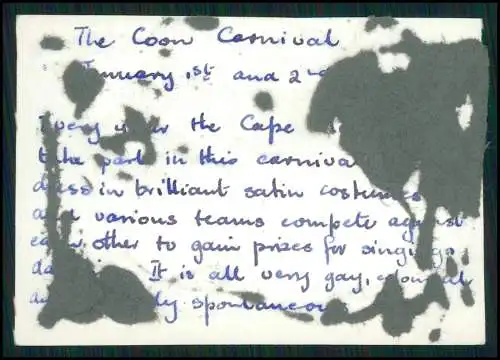 The Coon Carnival
January 1st and 2nd
Every year the Cape
take part in this carnival
dress in brilliant satin costumes
and various teams compete against
each other to gain prizes for singing
It is all very gay, colourful
spontaneous